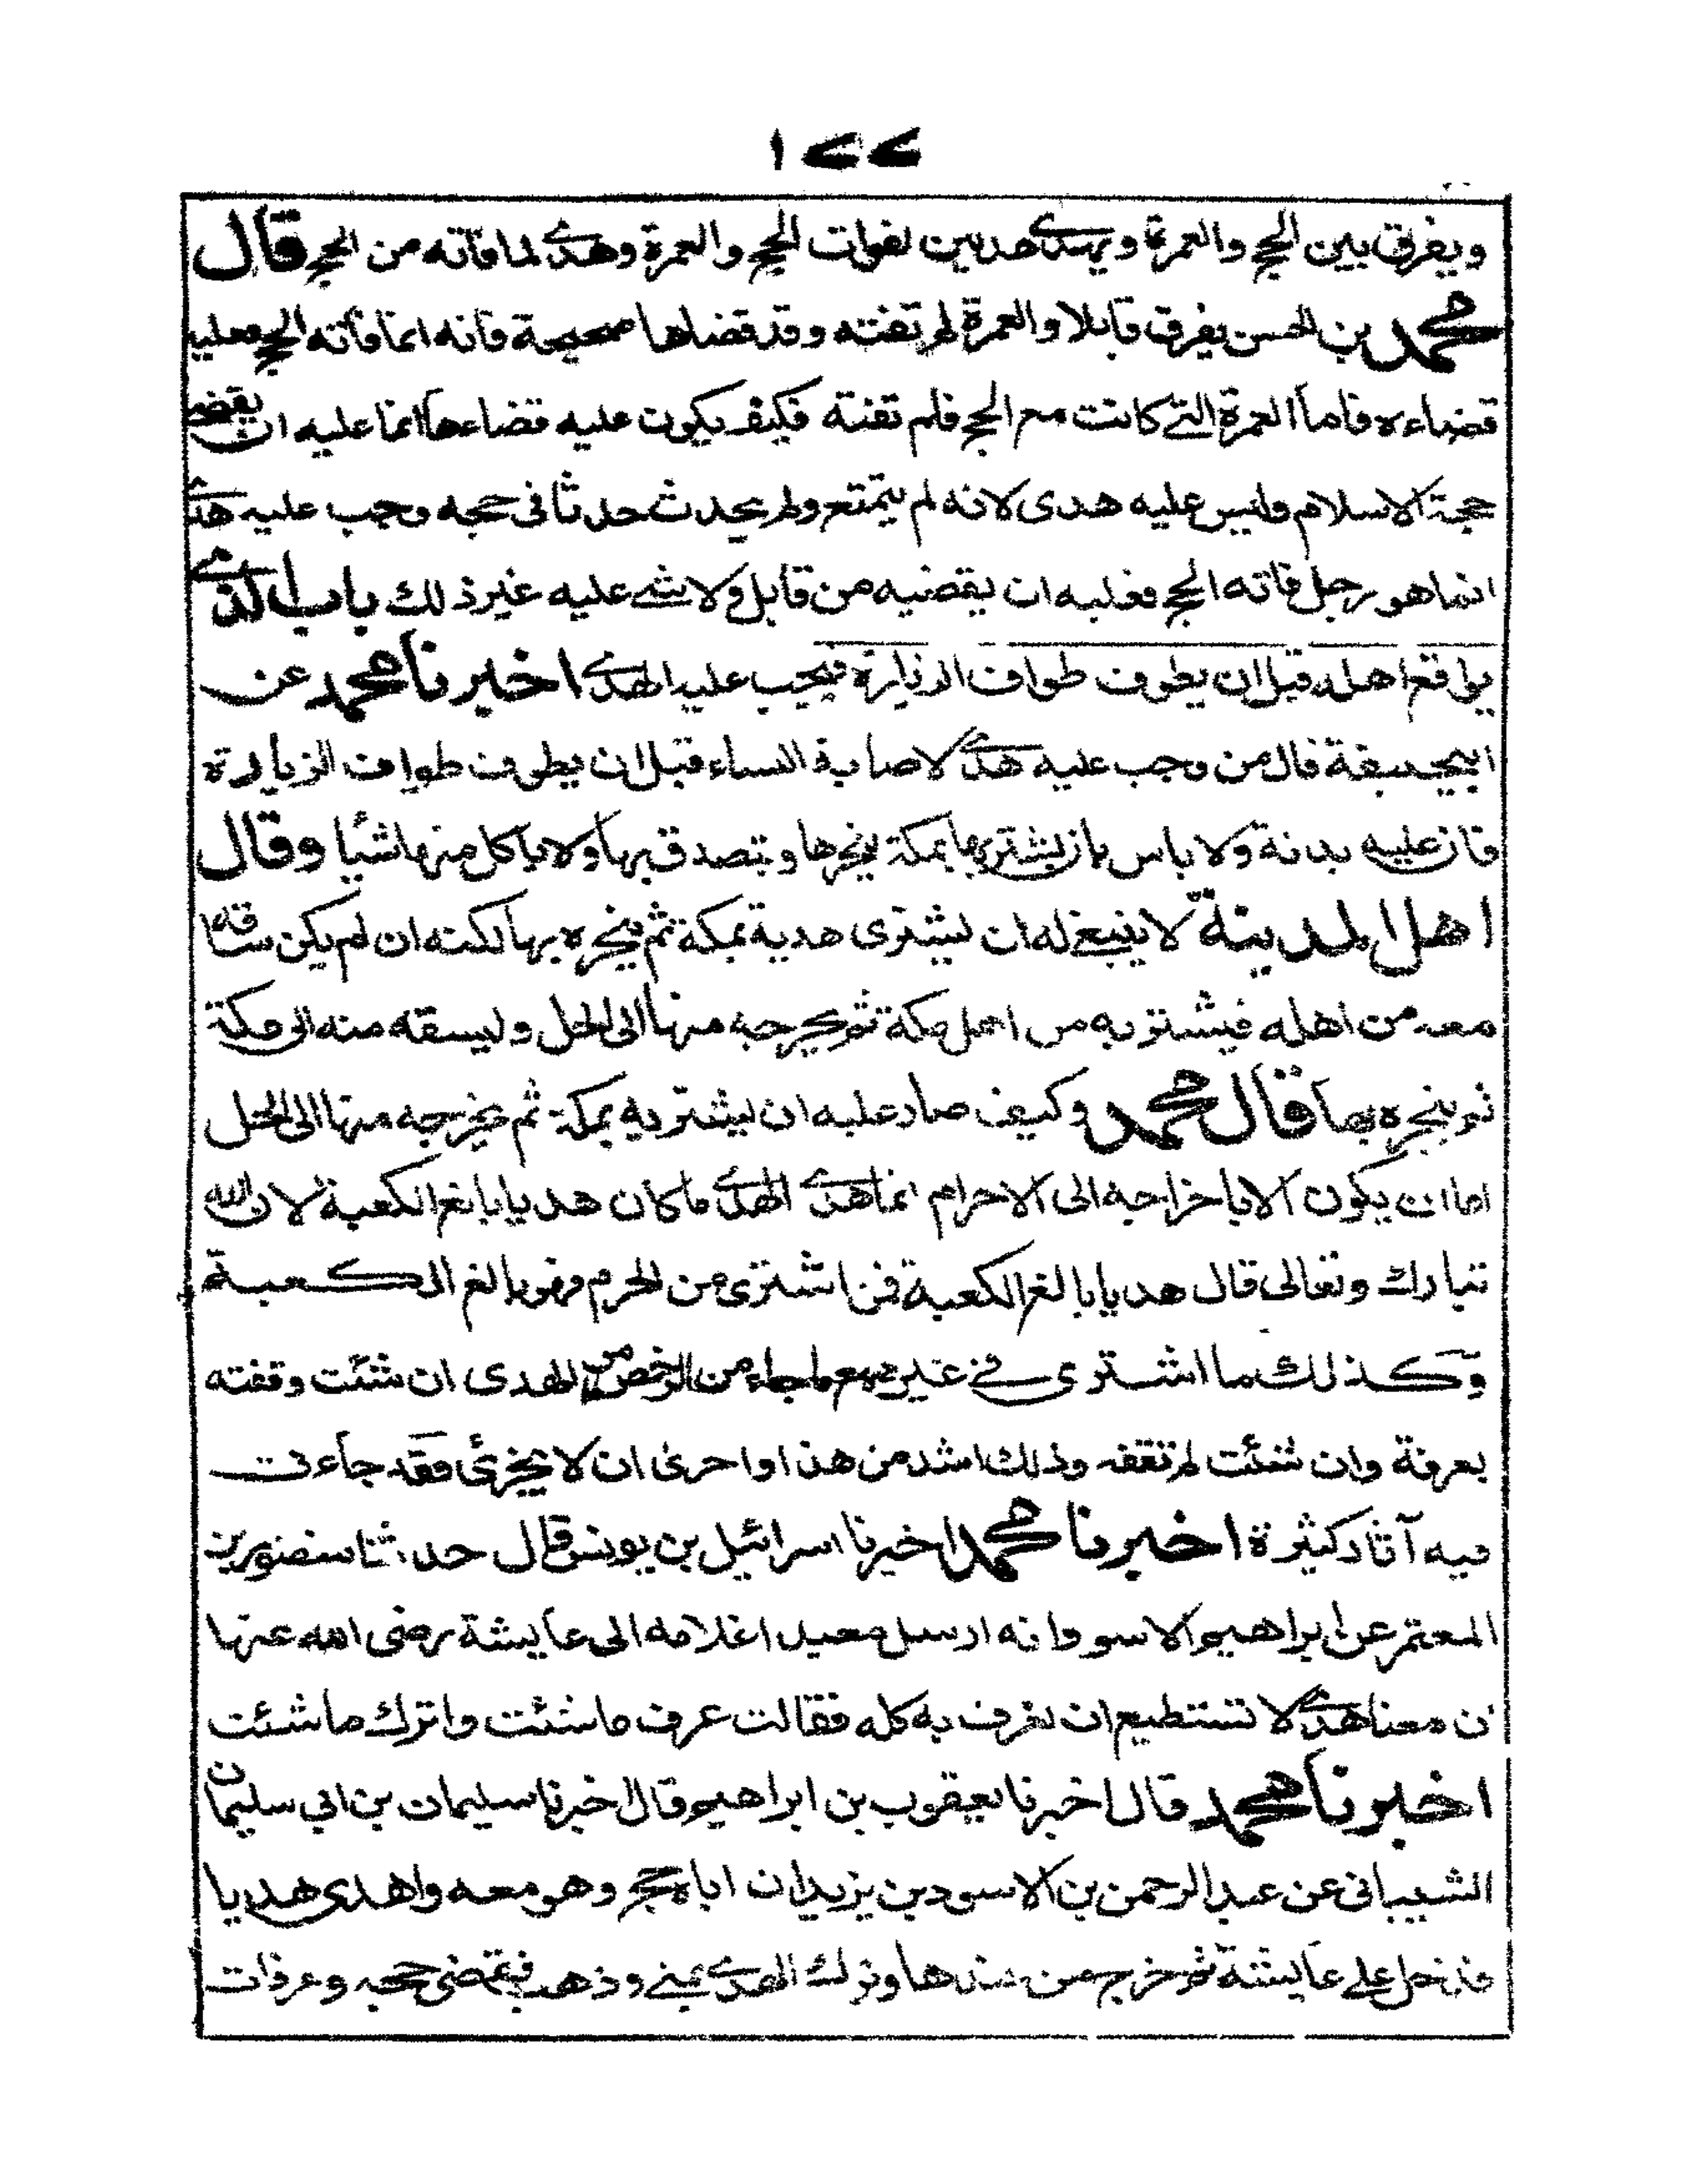 ١٧٧
ويفرق بين الحج والعمرة ويهدى هديين لفوات الحج والعمرة وهدى لما فاته من الحج قال
محمد بن الحسن يفرق قابلا والعمرة لم تفته وقد قضاها صحيحة فانه انما فاته الحج فعليه
قضاءه فاما العمرة التى كانت مع الحج فلم تفته فكيف يكون عليه قضاءها انما عليه ان يقضى
حجة الاسلام وليس عليه هدى لانه لم يتمتع ولم يحدث حدثا فى حجه وجب عليه هدى
انما هو رجل فاته الحج فعليه ان يقضيه من قابل ولا شى عليه غير ذلك باب الذى
يواقع اهله قبل ان يطوف طواف الزيارة فيجب عليه الهدى اخبرنا محمد عن
ابيحنيفة قال من وجب عليه هدى لاصابة النساء قبل ان يطوف طواف الزيارة
فان عليه بدنة ولا باس بان يشتريها بمكة ينحرها ويتصدق بها ولا ياكل منها شئيا وقال
اهل المدينة لا ينبغى له ان يشترى هدية بمكة ثم ينحره بها لكنه ان لم يكن ساقه
معه من اهله فيشتريه من اهل مكة ثم يخرجه منها الى الحل وليسقه منه الى مكة
ثم ينحره بها قال محمد وكيف صار عليه ان يشتريه بمكة ثم يخرجه منها الى الحل
اما ان يكون الا باخراجه الى الاحرام انما هدى الهدى ما كان هديا بالغ الكعبة لان الله
تبارك وتعالى قال هديا بالغ الكعبة فمن اشترى من الحرم فهو بالغ الكعبة
وكذلك ما اشترى فى غيره مع ما جاء من الرخص من الهدى ان شئت وقفته
بعرفة وان شئت لم تقفه وذلك اشد من هذا واحرى ان لا يجزئ فقد جاءت
فيه آثار كثيرة اخبرنا محمد اخبرنا اسرائيل بن يونس قال حدثنا منصور بن
المعتمر عن ابراهيم الاسود انه ارسل معبد اغلامه الى عايشة رضى الله عنها
ان معنا هدى لا نستطيع ان نعرف به كله فقالت عرف ما شئت واترك ما شئت
اخبرنا محمد قال اخبرنا يعقوب بن ابراهيم قال اخبرنا سليمان بن ابي سليمان
الشيبانى عن عبد الرحمن بن الاسود بن يزيد ان اباه حج وهو معه واهدى هديا
فدخل على عايشة ثم خرج من عندها وترك الهدى بمنى وذهب فقضى حجه وعرفات